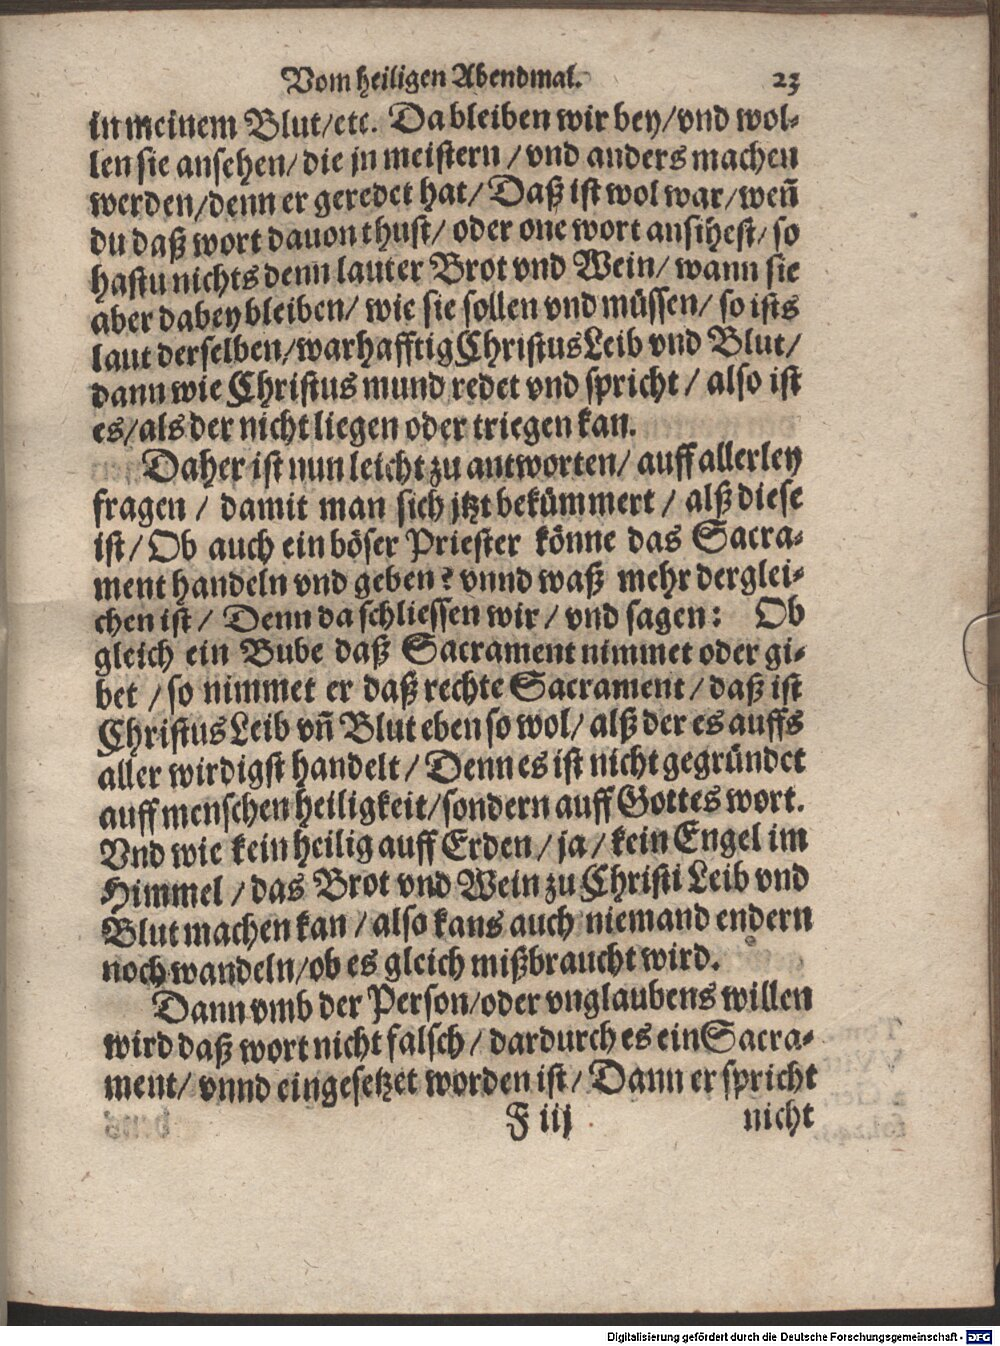 Vom heiligen Abendmal. 23
in meinem Blut/etc. Da bleiben wir bey/vnd wol-
len sie ansehen/die jn meistern/vnd anders machen
werden/denn er geredet hat/Daß ist wol war/weñ
du daß wort dauon thust/oder one wort ansihest/so
hastu nichts denn lauter Brot vnd Wein/wann sie
aber dabey bleiben/wie sie sollen vnd müssen/so ists
laut derselben/warhafftig Christus Leib vnd Blut/
dann wie Christus mund redet vnd spricht/also ist
es/als der nicht liegen oder triegen kan.
Daher ist nun leicht zu antworten/auff allerley
fragen/damit man sich jtzt bekümmert/alß diese
ist/Ob auch ein böser Priester könne das Sacra-
ment handeln vnd geben? vnnd waß mehr derglei-
chen ist/Denn da schliessen wir/vnd sagen: Ob
gleich ein Bube daß Sacrament nimmet oder gi-
bet/so nimmet er daß rechte Sacrament/daß ist
Christus Leib vñ Blut eben so wol/alß der es auffs
aller wirdigst handelt/Denn es ist nicht gegründet
auff menschen heiligkeit/sondern auff Gottes wort.
Vnd wie kein heilig auff Erden/ja/kein Engel im
Himmel/das Brot vnd Wein zu Christi Leib vnd
Blut machen kan/also kans auch niemand endern
noch wandeln/ob es gleich mißbraucht wird.
Dann vmb der Person/oder vnglaubens willen
wird daß wort nicht falsch/dardurch es ein Sacra-
ment/vnnd eingesetzet worden ist/Dann er spricht
F iij nicht
Digitalisierung gefördert durch die Deutsche Forschungsgemeinschaft - DFG